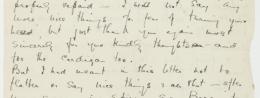 properly repaid — I will not say any
more nice things for fear of turning your
head, but just thank you again most
sincerely for your kindly thoughts and
for the cardigan too.
But I had meant in this letter not to
flatter or say nice things